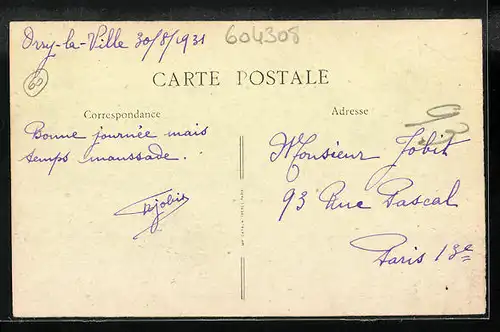 Orry-la-Ville 30/8/1931
604308
60
CARTE POSTALE
Correspondance
Adresse
Bonne journée mais
temps maussade.
Rjobit
Monsieur Jobit
93 Rue Pascal
Paris 13e